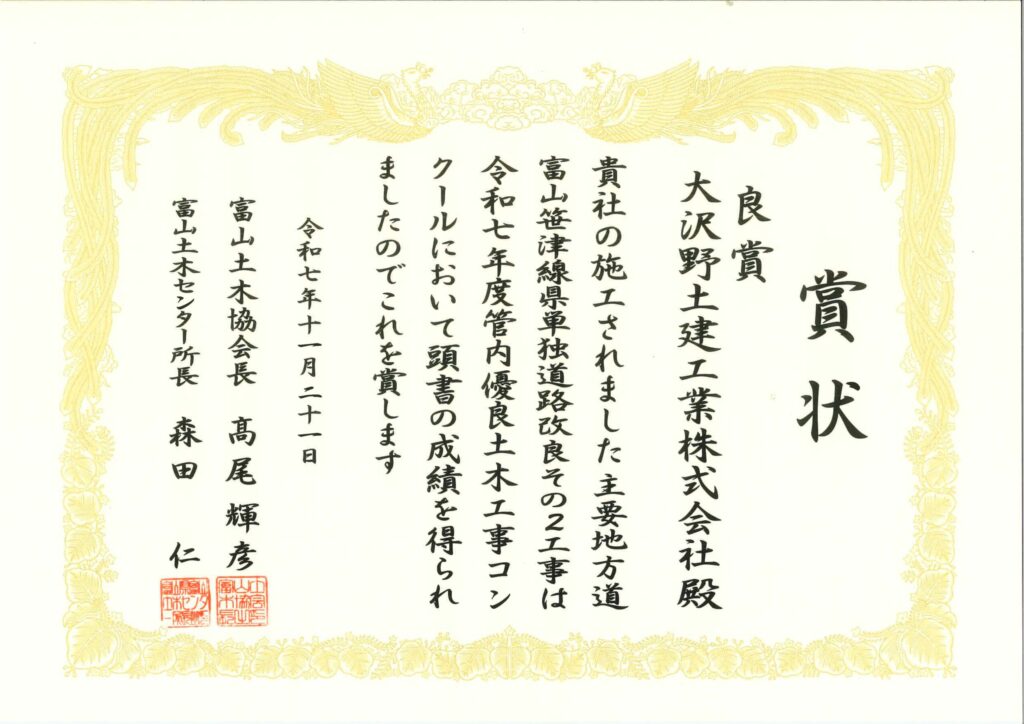 賞状
良賞
大沢野土建工業株式会社殿
貴社の施工されました主要地方道
富山笹津線県単独道路改良その2工事は
令和七年度管内優良土木工事コン
クールにおいて頭書の成績を得られ
ましたのでこれを賞します
令和七年十一月二十一日
富山土木協会長 髙尾輝彦
富山土木センター所長 森田仁